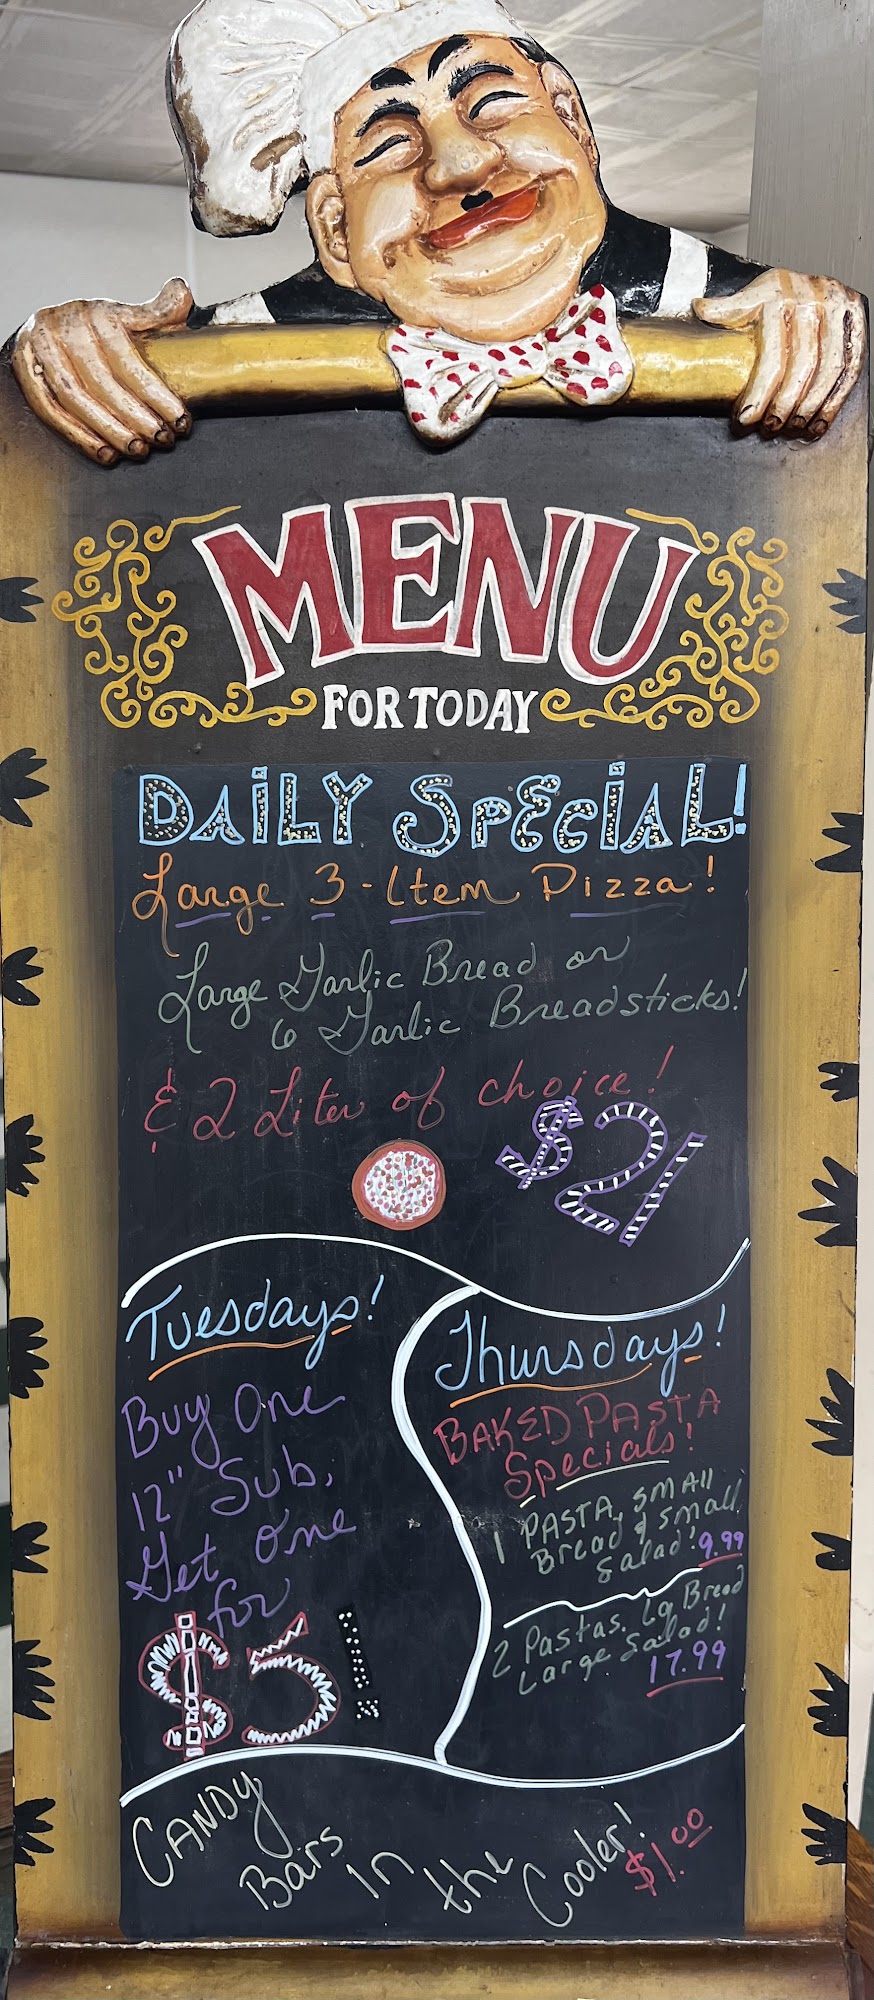 MENU
FOR TODAY
DAILY SPECIAL!
Large 3-Item Pizza!
Large Garlic Bread or
6 Garlic Breadsticks!
& 2 Liter of choice!
$21
Tuesdays!
Buy One
12" Sub,
Get One
for
$5!
Thursdays!
BAKED PASTA
Specials!
1 PASTA, SMAll
Bread & Small
Salad! 9.99
2 Pastas. Lg Bread
Large Salad!
17.99
CANDY
Bars In the Cooler!
$1.00